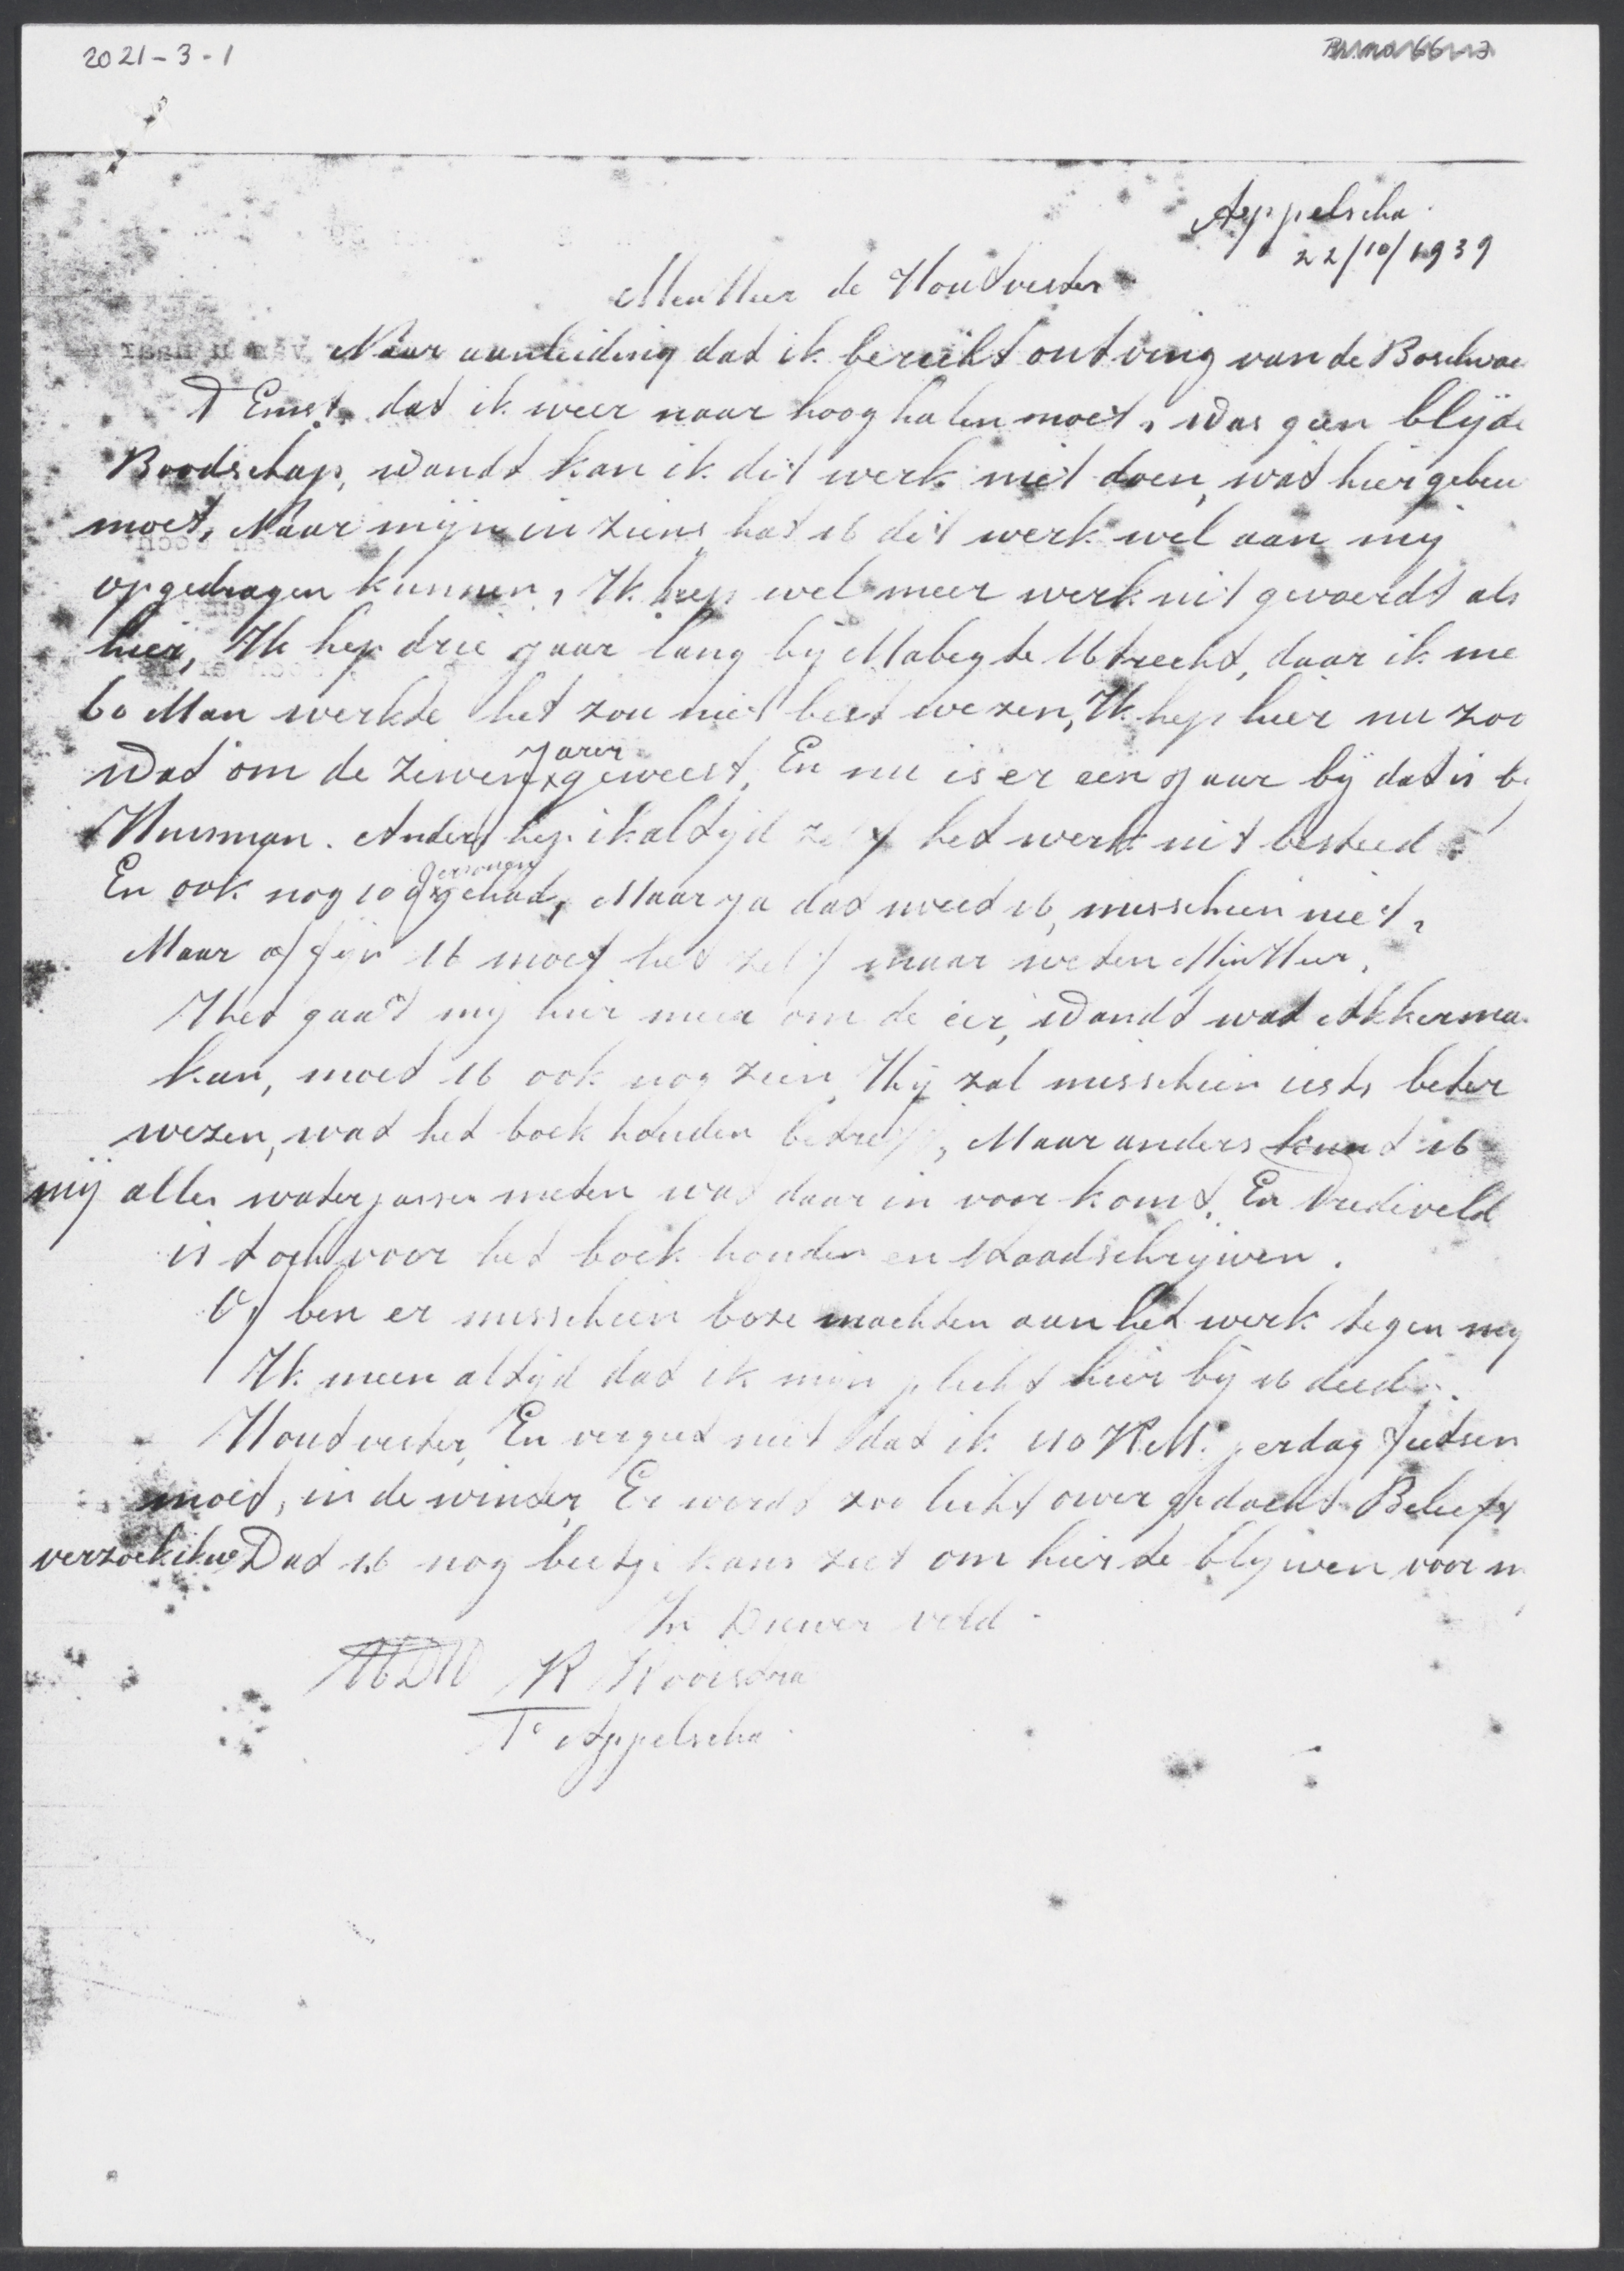 2021-3-1
Appelscha.
22/10/1939
Men Heer de Houtvester
Naar aanleiding dat ik bereikt ontving van de Boschwac
T Ernst, dat ik weer naar hooghalen moet, Was geen blijde
Boodschap, Wandt kan ik dit werk niet doen, wat hier gebeu
moet, Naar mijn inziens hat U dit werk wel aan mij
opgedragen kunnen, Ik hep wel meer werk uit gevoerdt als
hier, Ik hep drie jaar lang bij Mabeg te Utrecht, daar ik me
60 Man werkte het zou niet best wezen, Ik hep hier nu zoo
Wat om de zewen jaren geweest, En nu is er een jaar bij dat is b
Huisman. Anders hep ik altijd zelf het werk uit besteed
En ook nog 100 personen gehad, Maar ja dat weet U, misschien niet,
Maar affijn U moet het zelf maar weten Mijn Heer,
Het gaat mij hier meer om de eer, Wandt wat Akkerma
kan, moet U ook nog zien, Hij zal misschien iets beter
wezen, wat het boek houden betreft, Maar anders kunt U
mij alles waterpassen meten wat daar in voor komt. En Vredeveld
is toch voor het boek houden en Staadschrijwen.
Of ben er misschien boze machten aan het werk tegen mij
Ik meen altijd dat ik mijn plicht hier bij U deed.
Houtvester, En vergeet niet dat ik 110 K.M. per dag fietsen
moet, in de winter, Er wordt zoo licht over gedacht. Beleeft
verzoek ik u Dat U nog beetje kans ziet om hier te blijwen voor m
In Diewer veld.
UEDW R Kooistra
Te Appelscha.